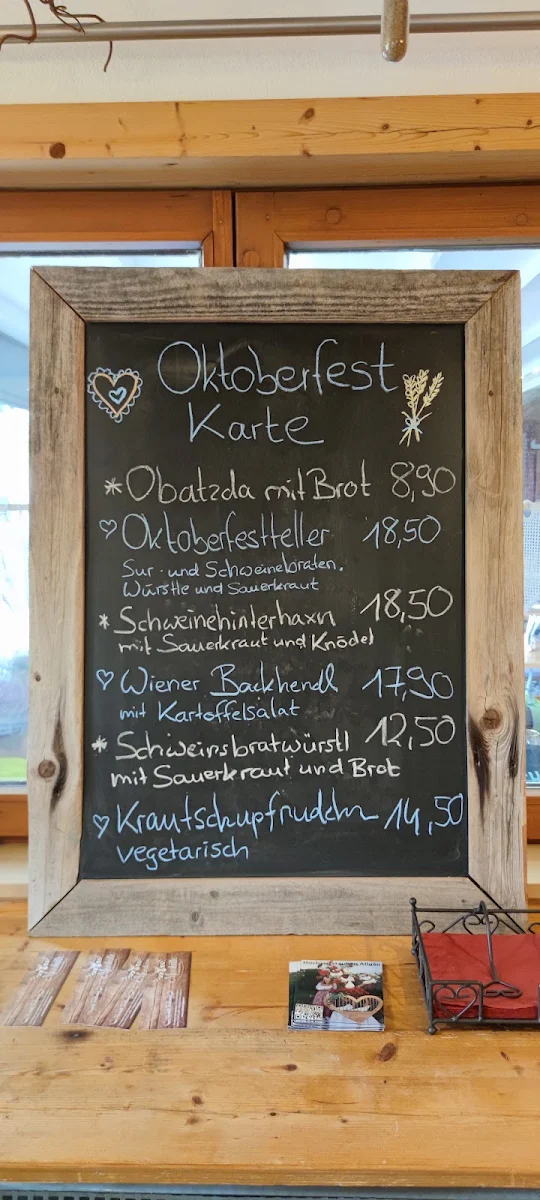 Oktoberfest
Karte
*Obatzda mit Brot 8,90
♡Oktoberfestteller 18,50
Sur- und Schweinebraten.
Würstle und Sauerkraut
*Schweinehinterhaxn 18,50
mit Sauerkraut und Knödel
♡Wiener Backhendl 17,90
mit Kartoffelsalat
*Schweinsbratwürstl 12,50
mit Sauerkraut und Brot
♡Krautschupfnudeln 14,50
vegetarisch